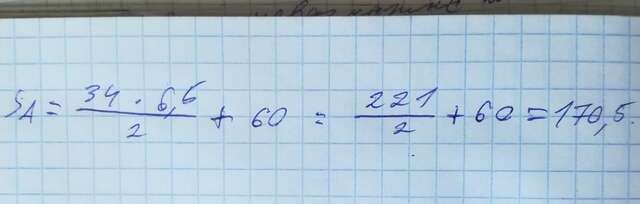 S_A = \frac{34 \cdot 6,5}{2} + 60 = \frac{221}{2} + 60 = 170,5.